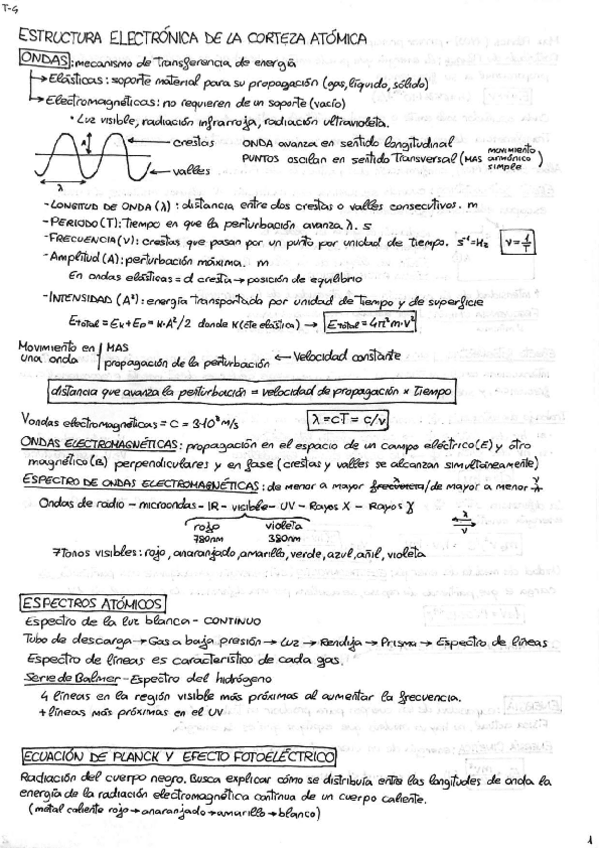 T-4
ESTRUCTURA ELECTRÓNICA DE LA CORTEZA ATÓMICA
ONDAS: mecanismo de transferencia de energía
→ Elásticas: soporte material para su propagación (gas, líquido, sólido)
→ Electromagnéticas: no requieren de un soporte (vacío)
• Luz visible, radiación infrarroja, radiación ultravioleta.
A
crestas
valles
λ
ONDA avanza en sentido longitudinal
PUNTOS oscilan en sentido transversal (MAS movimiento armónico simple)
-LONGITUD DE ONDA (λ): distancia entre dos crestas o valles consecutivos. m
-PERIODO (T): Tiempo en que la perturbación avanza λ. s
-FRECUENCIA (ν): crestas que pasan por un punto por unidad de tiempo. s⁻¹=Hz ν=1/T
-Amplitud (A): perturbación máxima. m
En ondas elásticas = d cresta → posición de equilibrio
-INTENSIDAD (A²): energía transportada por unidad de tiempo y de superficie
Etotal = Ek+Ep = K·A²/2 donde K(cte elástica) → Etotal = 4π²m·ν²
Movimiento en una onda
MAS
propagación de la perturbación ← Velocidad constante
distancia que avanza la perturbación = velocidad de propagación × tiempo
Vondas electromagnéticas = C = 3·10⁸ m/s λ = cT = c/ν
ONDAS ELECTROMAGNÉTICAS: propagación en el espacio de un campo eléctrico (E) y otro
magnético (B) perpendiculares y en fase (crestas y valles se alcanzan simultáneamente)
ESPECTRO DE ONDAS ELECTROMAGNÉTICAS: de menor a mayor frecuencia / de mayor a menor
Ondas de radio - microondas - IR - visible - UV - Rayos X - Rayos γ
rojo violeta
780nm 380nm
λ
ν
7 tonos visibles: rojo, anaranjado, amarillo, verde, azul, añil, violeta
ESPECTROS ATÓMICOS
Espectro de la luz blanca - CONTINUO
Tubo de descarga → Gas a baja presión → Luz → Rendija → Prisma → Espectro de líneas
Espectro de líneas es característico de cada gas.
Serie de Balmer - Espectro del hidrógeno
4 líneas en la región visible más próximas al aumentar la frecuencia.
+ líneas más próximas en el UV
ECUACIÓN DE PLANCK Y EFECTO FOTOELÉCTRICO
Radiación del cuerpo negro. Busca explicar cómo se distribuía entre las longitudes de onda la
energía de la radiación electromagnética continua de un cuerpo caliente.
(metal caliente rojo → anaranjado → amarillo → blanco)
1